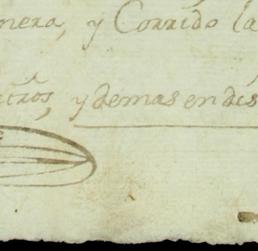 nera, y Corrido la
tros, y demas en dis